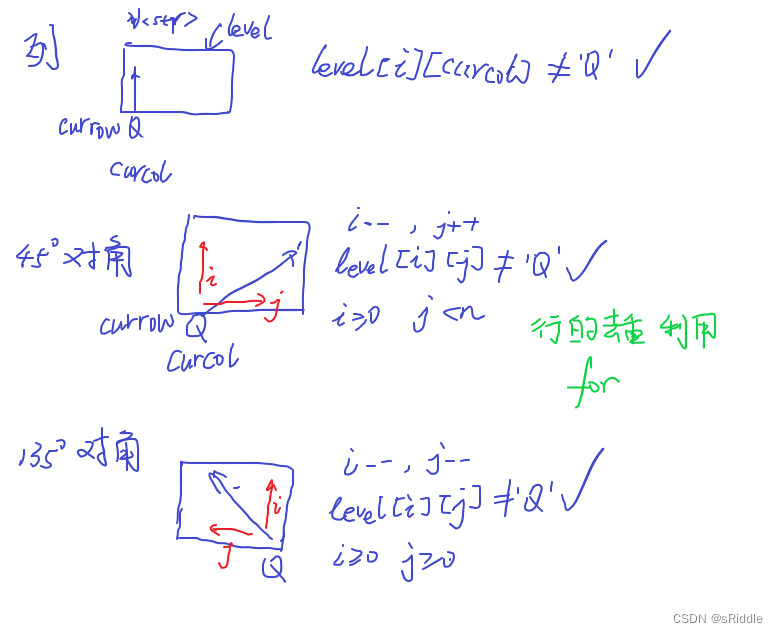 v<str>
level
列
level[i][curcol] ≠ 'Q' ✓
currow Q
curcol
i--, j++
45° 对角
i
level[i][j] ≠ 'Q' ✓
j
currow Q
i≥0 j<n
curcol
行的去重 利用
for
135° 对角
i--, j--
i
level[i][j] ≠ 'Q' ✓
j
Q
i≥0 j≥0
CSDN @sRiddle